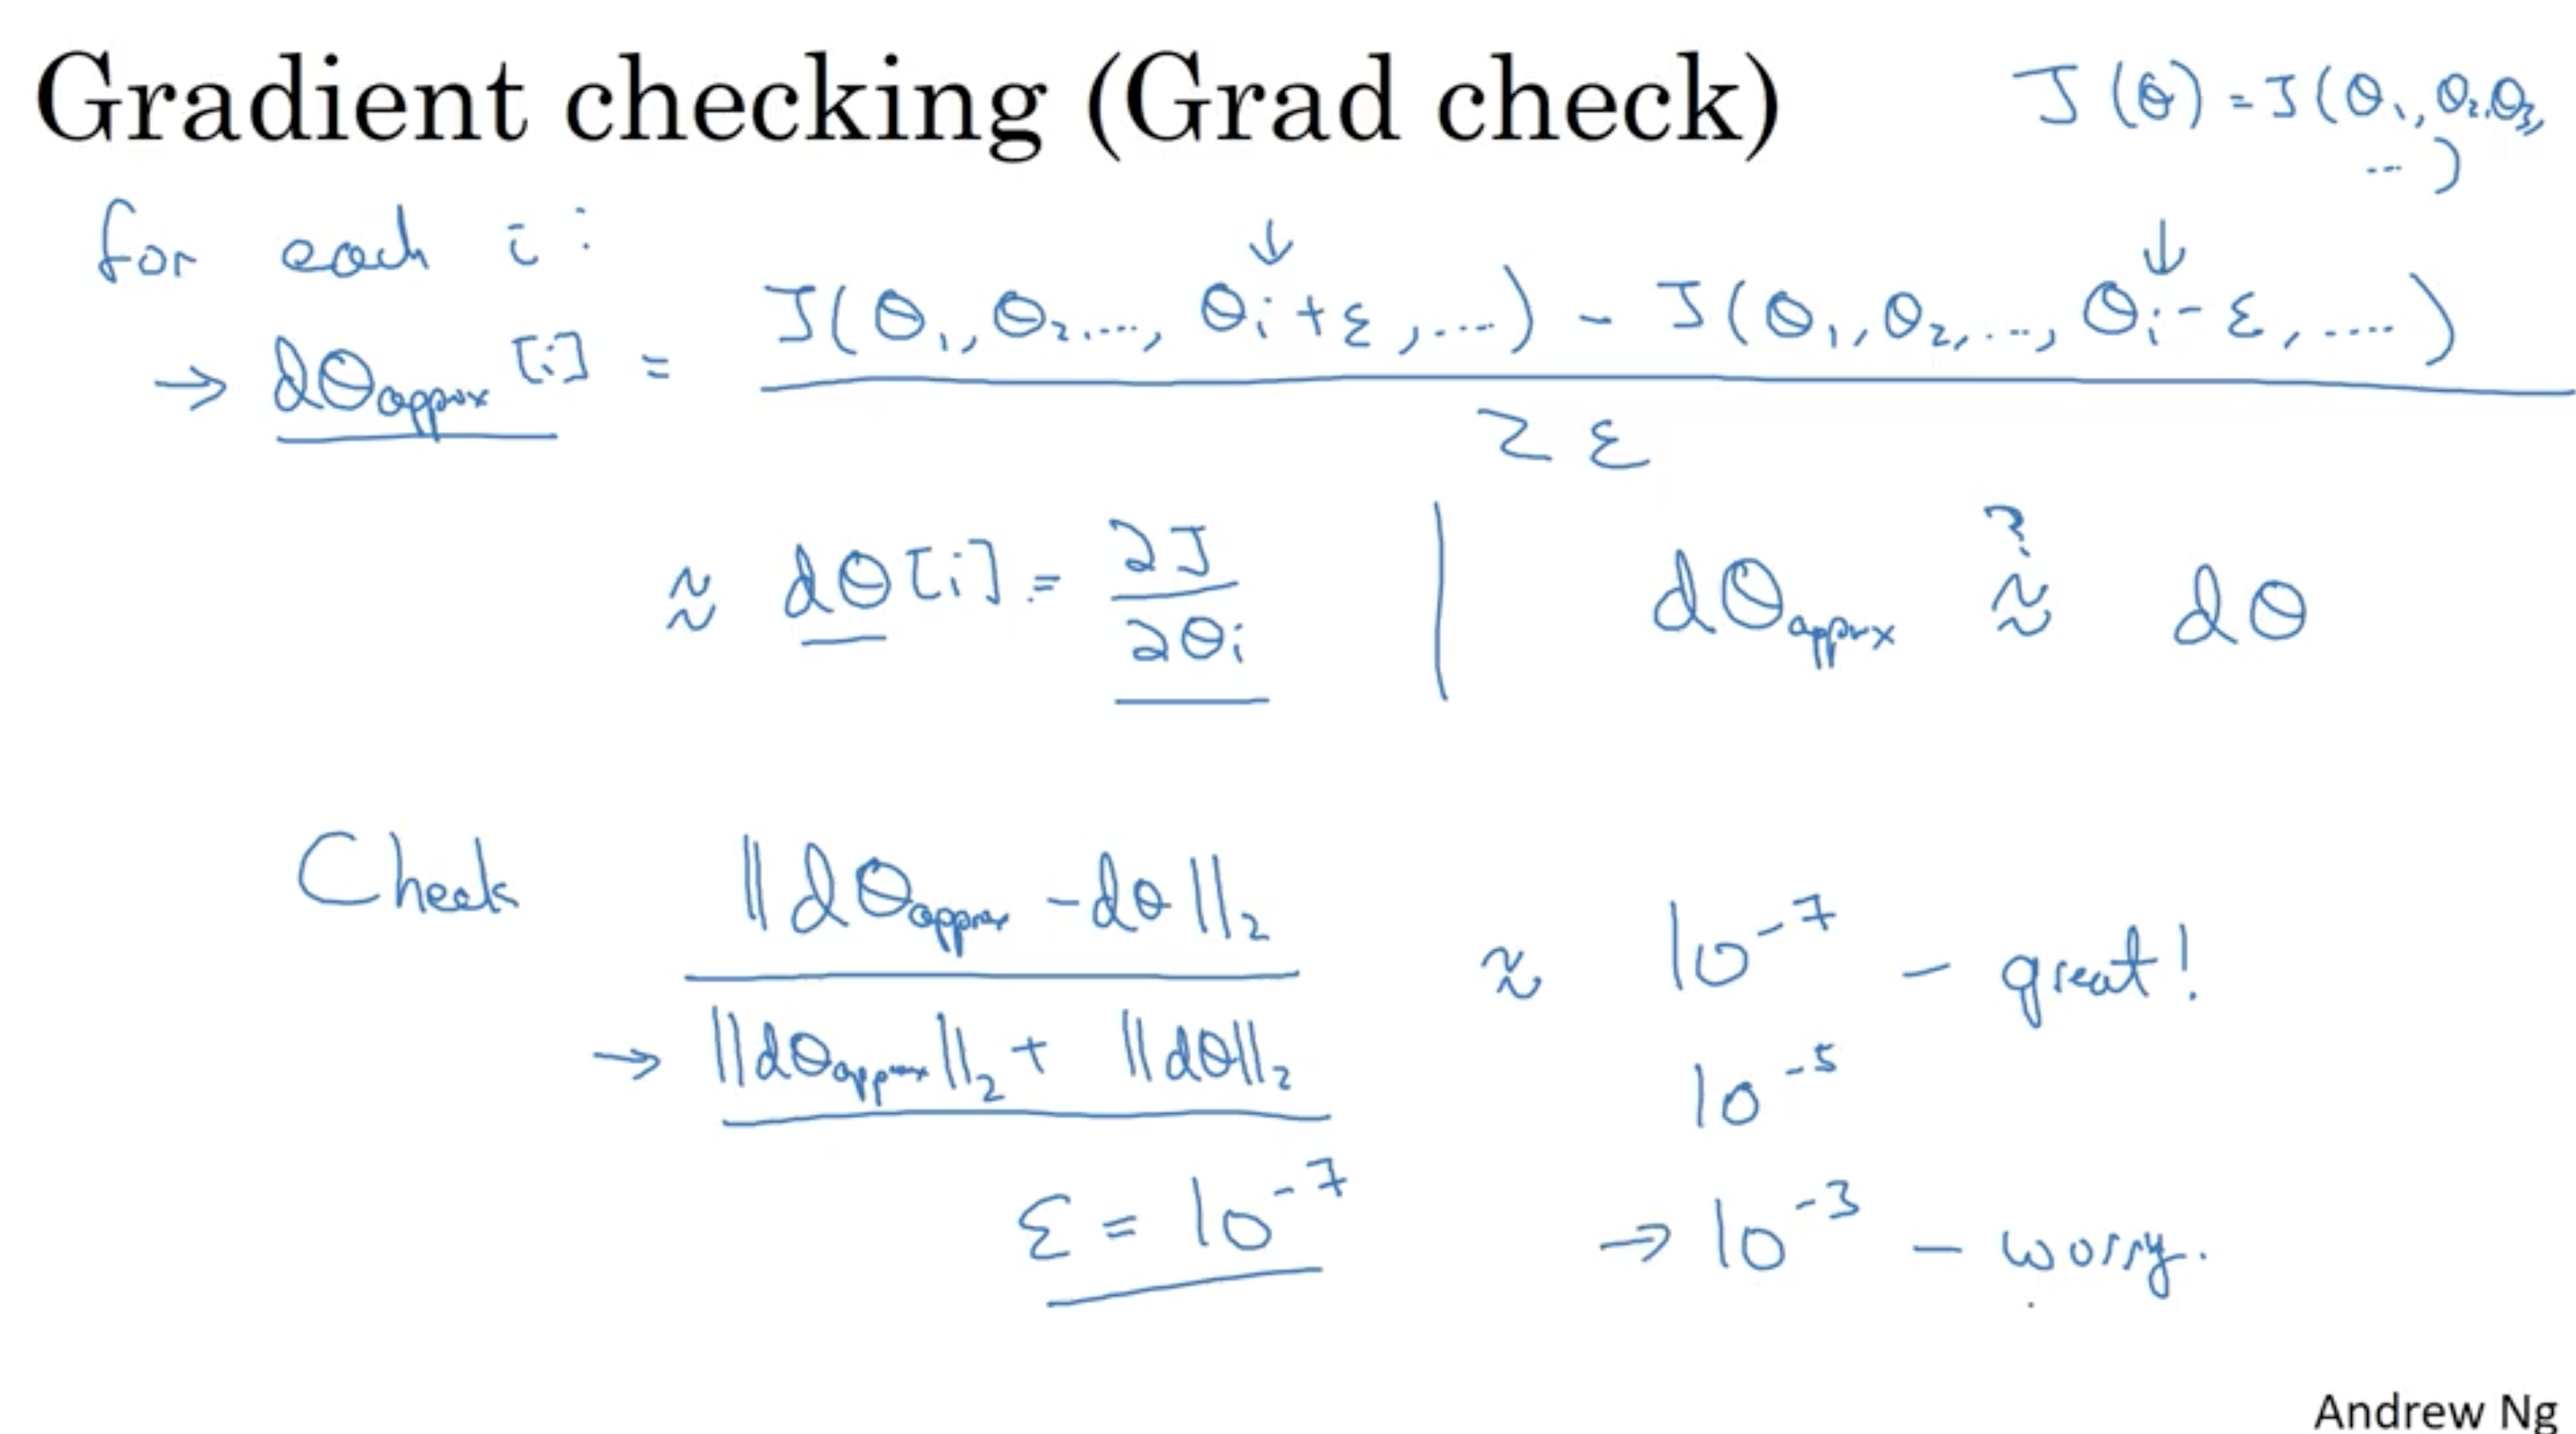 Gradient checking (Grad check)
J(θ) = J(θ₁, θ₂, θ₃, ...)
for each i:
→ dθapprox[i] = (J(θ₁, θ₂, ..., θᵢ+ε, ....) - J(θ₁, θ₂, ..., θᵢ-ε, ....)) / 2ε
≈ dθ[i] = ∂J/∂θᵢ | dθapprox ≈? dθ
Check ||dθapprox - dθ||₂ / (||dθapprox||₂ + ||dθ||₂) ≈ 10⁻⁷ - great!
10⁻⁵
ε = 10⁻⁷ → 10⁻³ - worry.
Andrew Ng